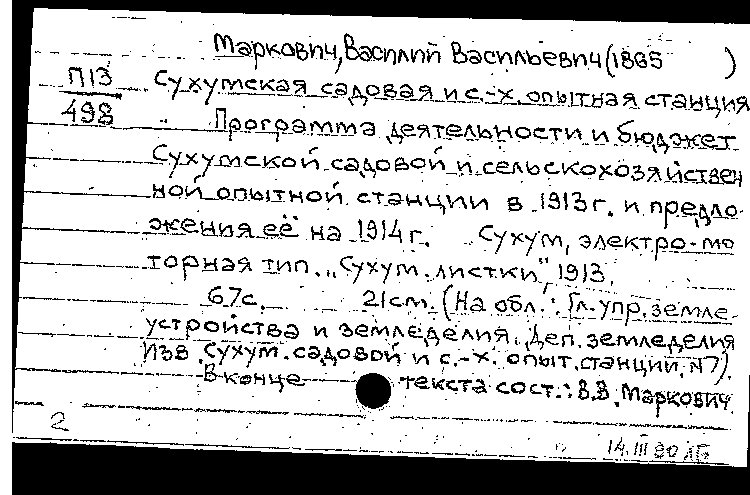 Маркович, Василий Васильевич (1865 )
П13 Сухумская садовая и с.-х. опытная станция
498 Программа деятельности и бюджет
Сухумской садовой и сельскохозяйствен
ной опытной станции в 1913 г. и предло-
жения её на 1914 г. Сухум, электро-мо
торная тип. „Сухум. листки", 1913.
67с. 21cm. (На обл.: Гл. упр. земле-
устройства и земледелия. Деп. земледелия
Изв. Сухум. садовой и с.-х. опыт. станции. N7).
В конце текста сост.: В.В. Маркович
2
14.III 90